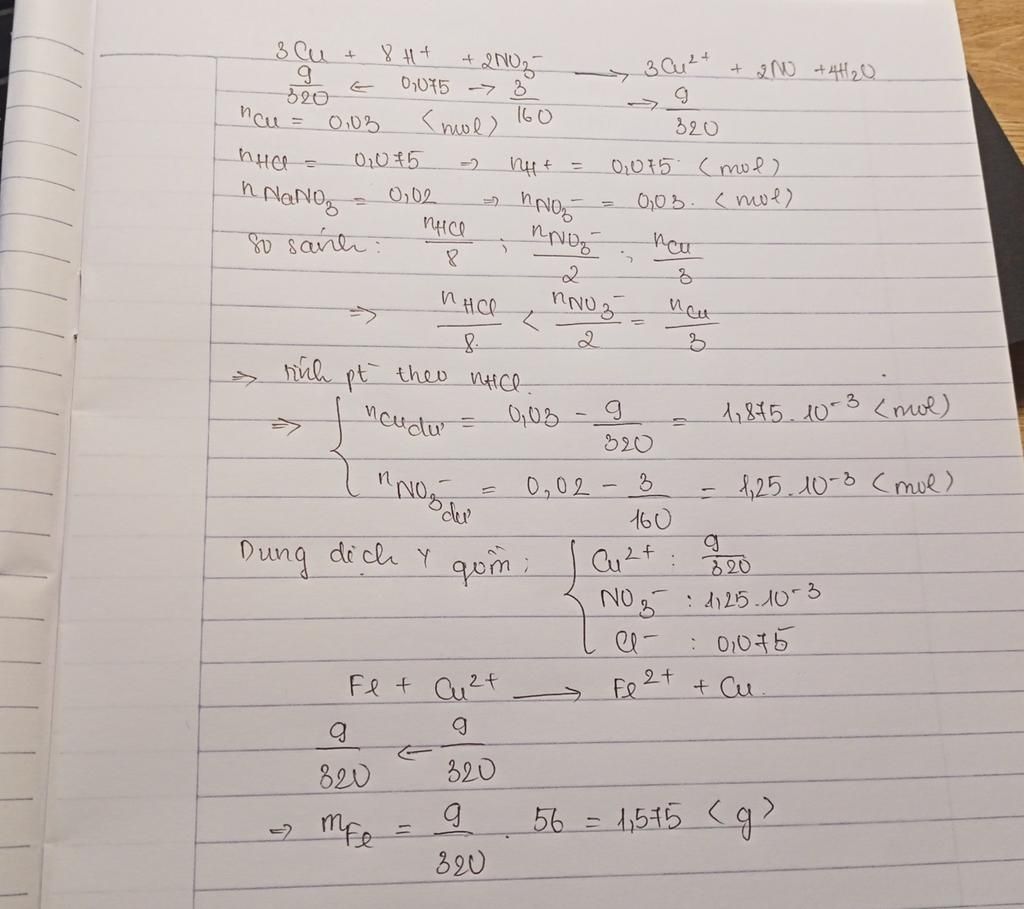 3Cu + 8H+ + 2NO3- → 3Cu2+ + 2NO + 4H2O
9/320 ← 0,075 → 3/160 → 9/320
nCu = 0,03 (mol)
nHCl = 0,075 => nH+ = 0,075 (mol)
nNaNO3 = 0,02 => nNO3- = 0,03. (mol)
So sánh: nHCl/8 ; nNO3-/2 ; nCu/3
=> nHCl/8 < nNO3-/2 = nCu/3
=> tính pt theo nHCl.
=> { nCu dư = 0,03 - 9/320 = 1,875.10-3 (mol)
nNO3- dư = 0,02 - 3/160 = 1,25.10-3 (mol)
Dung dịch Y gồm: { Cu2+ : 9/320
NO3- : 1,25.10-3
Cl- : 0,075
Fe + Cu2+ → Fe2+ + Cu.
9/320 ← 9/320
=> mFe = 9/320 . 56 = 1,575 (g)